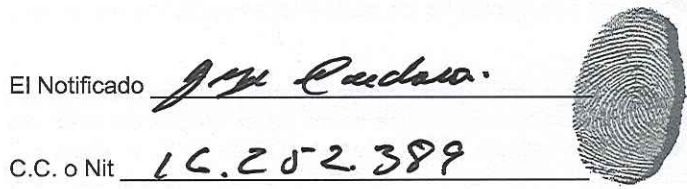 El Notificado Jose Cardona.
C.C. o Nit 16.252.389